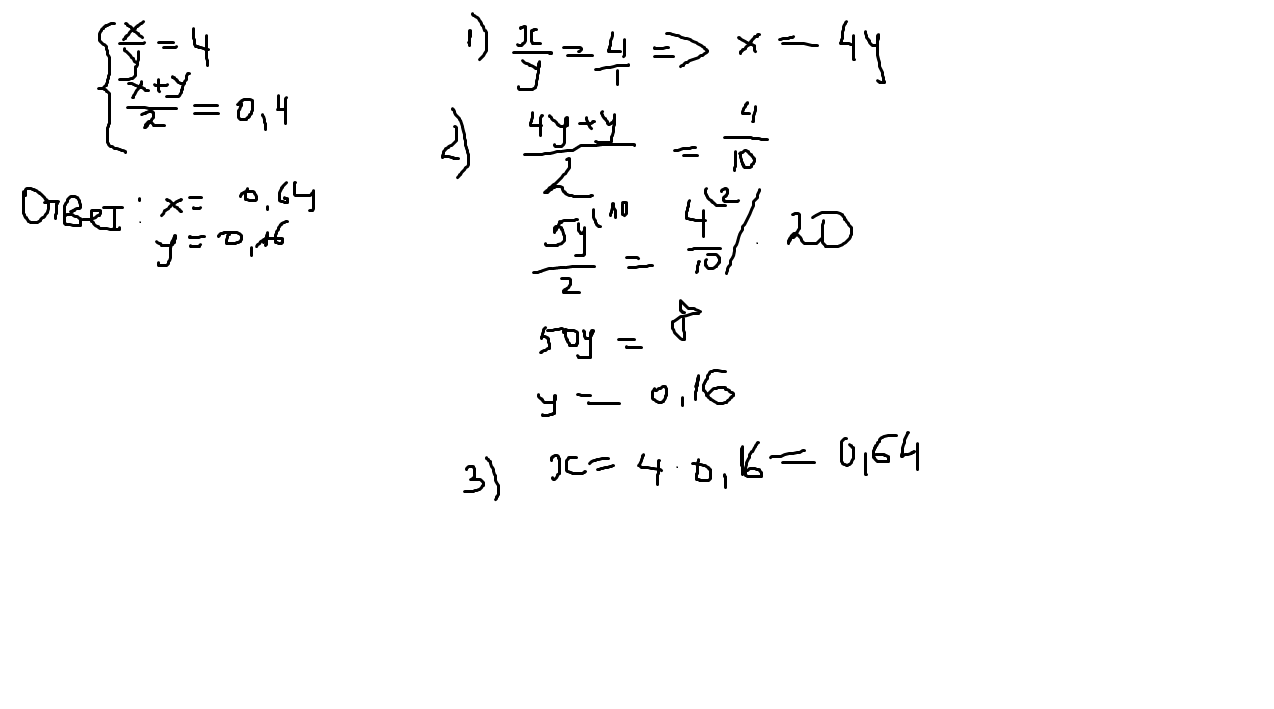 x/y = 4
(x+y)/2 = 0,4
Ответ: x = 0,64
y = 0,16
1) x/y = 4/1 => x = 4y
2) (4y+y)/2 = 4/10
5y^(10/2 = 4^(2/10 / · 20
50y = 8
y = 0,16
3) x = 4 · 0,16 = 0,64